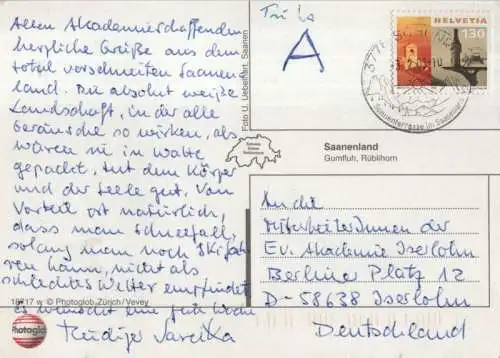 Allen Akademieschaffenden
herzliche Grüße aus dem
total verschneiten Saanen-
land. Die absolut weiße
Landschaft, in der alle
Geräusche so wirken, als
wären sie in Watte
gepackt, tut dem Körper
und der Seele gut. Von
Vorteil ist natürlich,
dass man Schneefall,
solang man noch Skifah-
ren kann, nicht als
schlechtes Wetter empfindet
Es wünscht eine gute Woche
Rüdiger
18717 w © Photoglob, Zürich/Vevey
Photoglob
Foto U. Uebelhart, Saanen
A
HELVETIA
130
Saanenland
Gumfluh, Rüblihorn
An die
MitarbeiterInnen der
Ev. Akademie Iserlohn
Berliner Platz 12
D-58638 Iserlohn
Deutschland